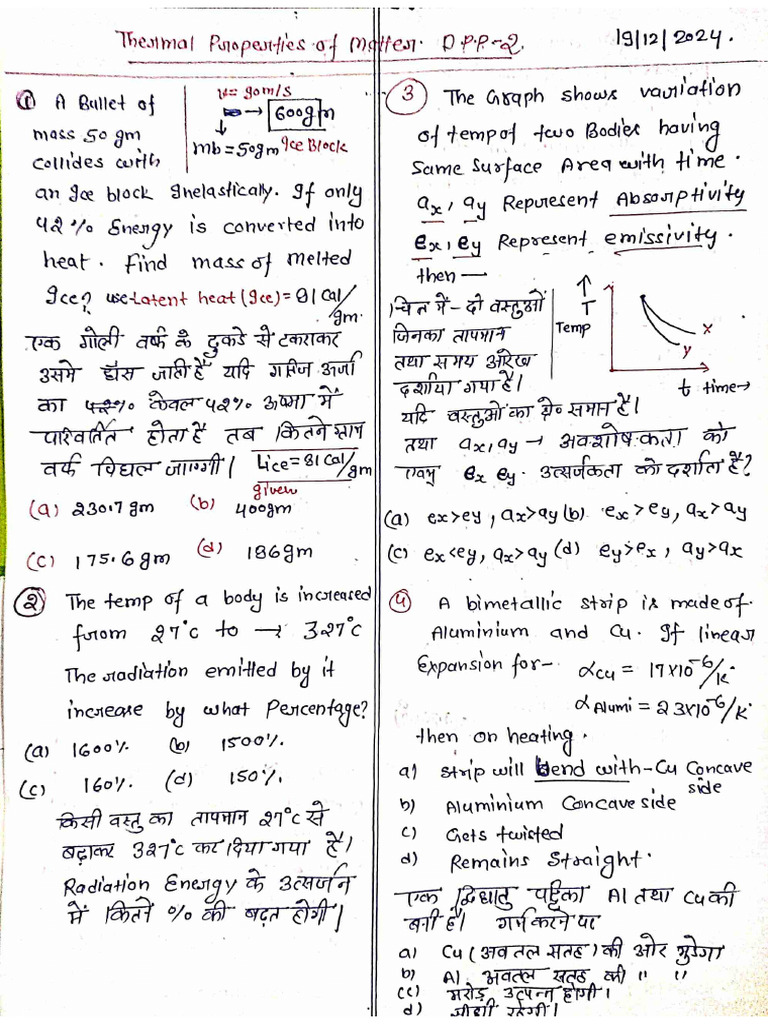 Thermal Properties of Matter D.P.P-2. 19/12/2024.
① A Bullet of
mass 50 gm
collides with
v = 90m/s
→ 600gm
mb = 50gm Ice Block
an Ice block Inelastically. If only
42% Energy is converted into
heat. Find mass of melted
Ice? use Latent heat (Ice) = 81 Cal/gm.
एक गोली वर्फ के टुकडे से टकराकर
उसमे धँस जाती है यदि गतिज ऊर्जा
का केवल 42% ऊष्मा में
परिवर्तित होता है तब कितने ग्राम
वर्फ पिघल जाएगी। Lice = 81 Cal/gm
given
(a) 230.7 gm (b) 400gm
(c) 175.6 gm (d) 186gm
② The temp of a body is increased
from 27°c to → 327°c
The radiation emitted by it
increase by what Percentage?
(a) 1600% (b) 1500%.
(c) 160%. (d) 150%.
किसी वस्तु का तापमान 27°c से
बढ़ाकर 327°c कर दिया गया है।
Radiation Energy के उत्सर्जन
में कितने % की बढ़त होगी।
③ The Graph shows variation
of temp of two Bodies having
Same Surface Area with time.
ax, ay Represent Absorptivity
ex, ey Represent emissivity.
then —
चित्र में - दो वस्तुओं
जिनका तापमान
तथा समय आरेख
दर्शाया गया है।
↑
T
Temp
x
y
t time→
यदि वस्तुओं का क्षे० समान है।
तथा ax, ay → अवशोषकता को
एवम् ex ey. उत्सर्जकता को दर्शाते है?
(a) ex>ey, ax>ay (b) ex>ey, ax>ay
(c) ex<ey, ax>ay (d) ey>ex, ay>ax
④ A bimetallic strip is made of
Aluminium and Cu. If linear
Expansion for- αcu = 17×10⁻⁶/k
αAlumi = 23×10⁻⁶/k.
then on heating.
a) strip will bend with-Cu Concave side
b) Aluminium Concave side
c) Gets twisted
d) Remains Straight.
एक द्विधातु पट्टिका Al तथा Cu की
बनी है। गर्म करने पर
a) Cu (अवतल सतह) की ओर मुडेगा
b) Al अवतल सतह की " "
cc) मरोड़ उत्पन्न होगी।
d) सीधी रहेगी।